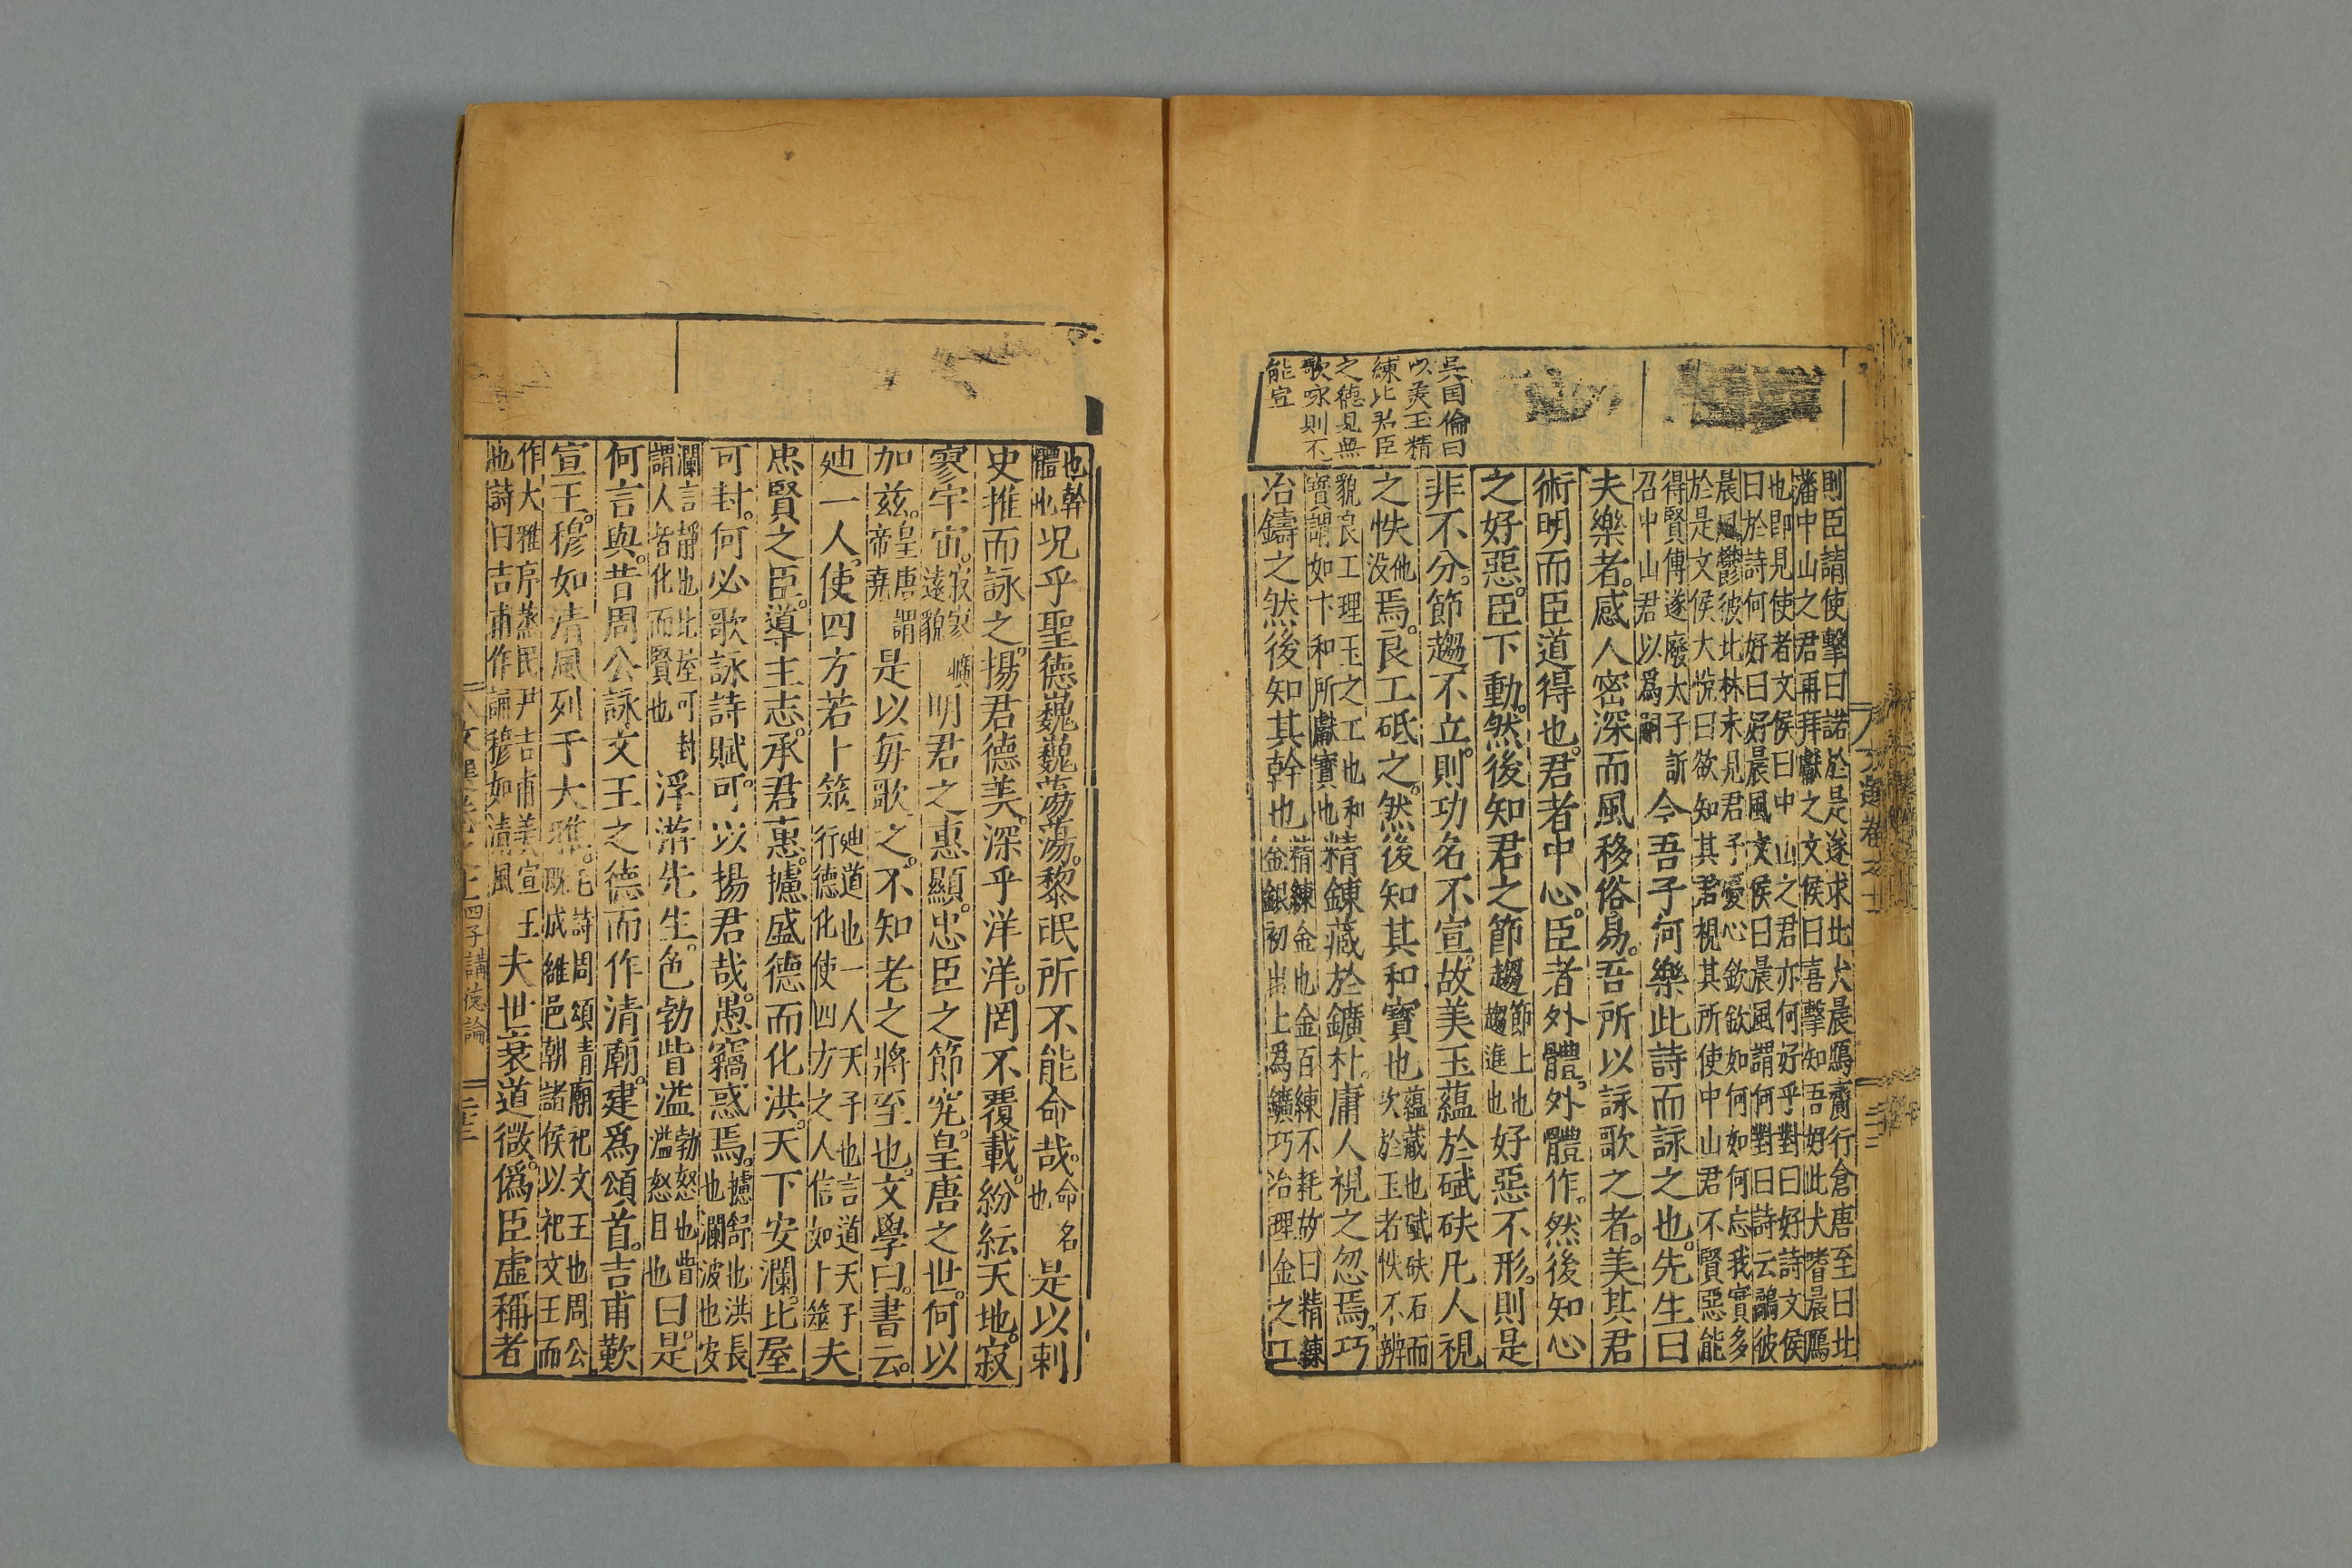 吳国倫曰
以美玉精
練比君臣
之德見無
歌咏則不
能宣
則臣請使擊曰諾於是遂求北犬晨鴈齎行倉唐至曰北
潘中山之君再拜獻之文侯曰喜擊知吾好此犬嗜晨鴈
也即見使者文侯曰中山之君亦何好乎對曰好詩文侯
曰於詩何好曰好晨風文侯曰晨風謂何對曰詩云鷸彼
晨風鬱彼北林未見君子憂心欽欽如何如何忘我實多
於是文侯大悅曰欲知其君視其所使中山君不賢惡能
得賢傅遂廢太子訢
召中山君以爲嗣
今吾子何樂此詩而詠之也。先生曰
夫樂者。感人密深而風移俗易。吾所以詠歌之者。美其君
術明而臣道得也。君者中心。臣者外體。外體作。然後知心
之好惡。臣下動。然後知君之節趨
節上也
趨進也
好惡不形。則是
非不分。節趨不立。則功名不宣。故美玉蘊於碔砆凡人視
之怢
他
没
焉。良工砥之。然後知其和寶也
蘊藏也碔砆石而
次於玉者怢不辨
貌良工理玉之工也和
寶謂如卞和所獻寶也
精鍊藏於鑛朴。庸人視之忽焉。巧
冶鑄之然後知其幹也
精練金也金百練不耗故曰精練
金銀初出上爲鑛巧冶理金之工
文選卷之十 二十二
也幹
體也
况乎聖德巍巍蕩蕩。黎氓所不能命哉。
命名
也
是以刺
史推而詠之。揚君德美。深乎洋洋。罔不覆載。紛紜天地。寂
寥宇宙。
寂寥曠
遠貌
明君之惠顯。忠臣之節究。皇唐之世。何以
加兹。
皇唐謂
帝堯
是以每歌之。不知老之將至也。文學曰。書云。
廸一人。使四方若卜筮
廸道也一人天子也言道天子
行德化使四方之人信如卜筮
夫
忠賢之臣。導主志。承君惠。攄盛德而化洪。天下安瀾。比屋
可封。何必歌詠詩賦。可以揚君哉。愚竊惑焉。
攄舒也洪長
也瀾波也安
瀾言靜也比屋可封
謂人皆化而賢也
浮游先生。色勃眥溢
勃怒也眥
溢怒目也
曰。是
何言與。昔周公詠文王之德而作清廟。建爲頌首。吉甫歎
宣王。穆如清風列于大雅。
毛詩周頌青廟祀文王也周公
既成維邑朝諸侯以祀文王而
作大雅序蒸民尹吉甫美宣王
也詩曰吉甫作誦穆如清風
夫世衰道微。僞臣虛稱者
文選卷之十 四子講德論 二十三